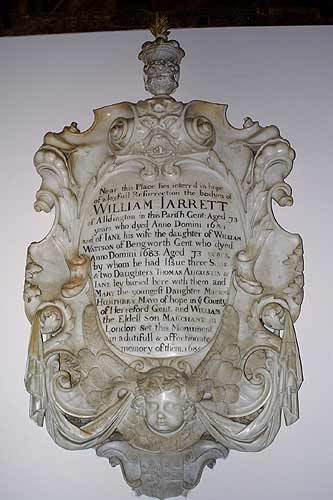 Near this Place lies interr'd in hope
of a Joyfull Resurrection the bodyes of
WILLIAM JARRETT
of Alldington in this Parish Gent: Aged 73
years who dyed Anno Domini 1681
and of JANE his wife the daughter of WILLIAM
WATSON of Bengworth Gent who dyed
Anno Domini 1683 Aged 73
by whom he had Issue three
& two Daughters THOMAS AUGUSTIN &
JANE ley buried here with them and
MARY the youngest Daughter Maried
HUMPHREY MAYO of hope in ye County
of Hereford Gent. and WILLIAM
the Eldest Son MARCHANT in
London Set this Monument
in a dutifull & affectionate
memory of them